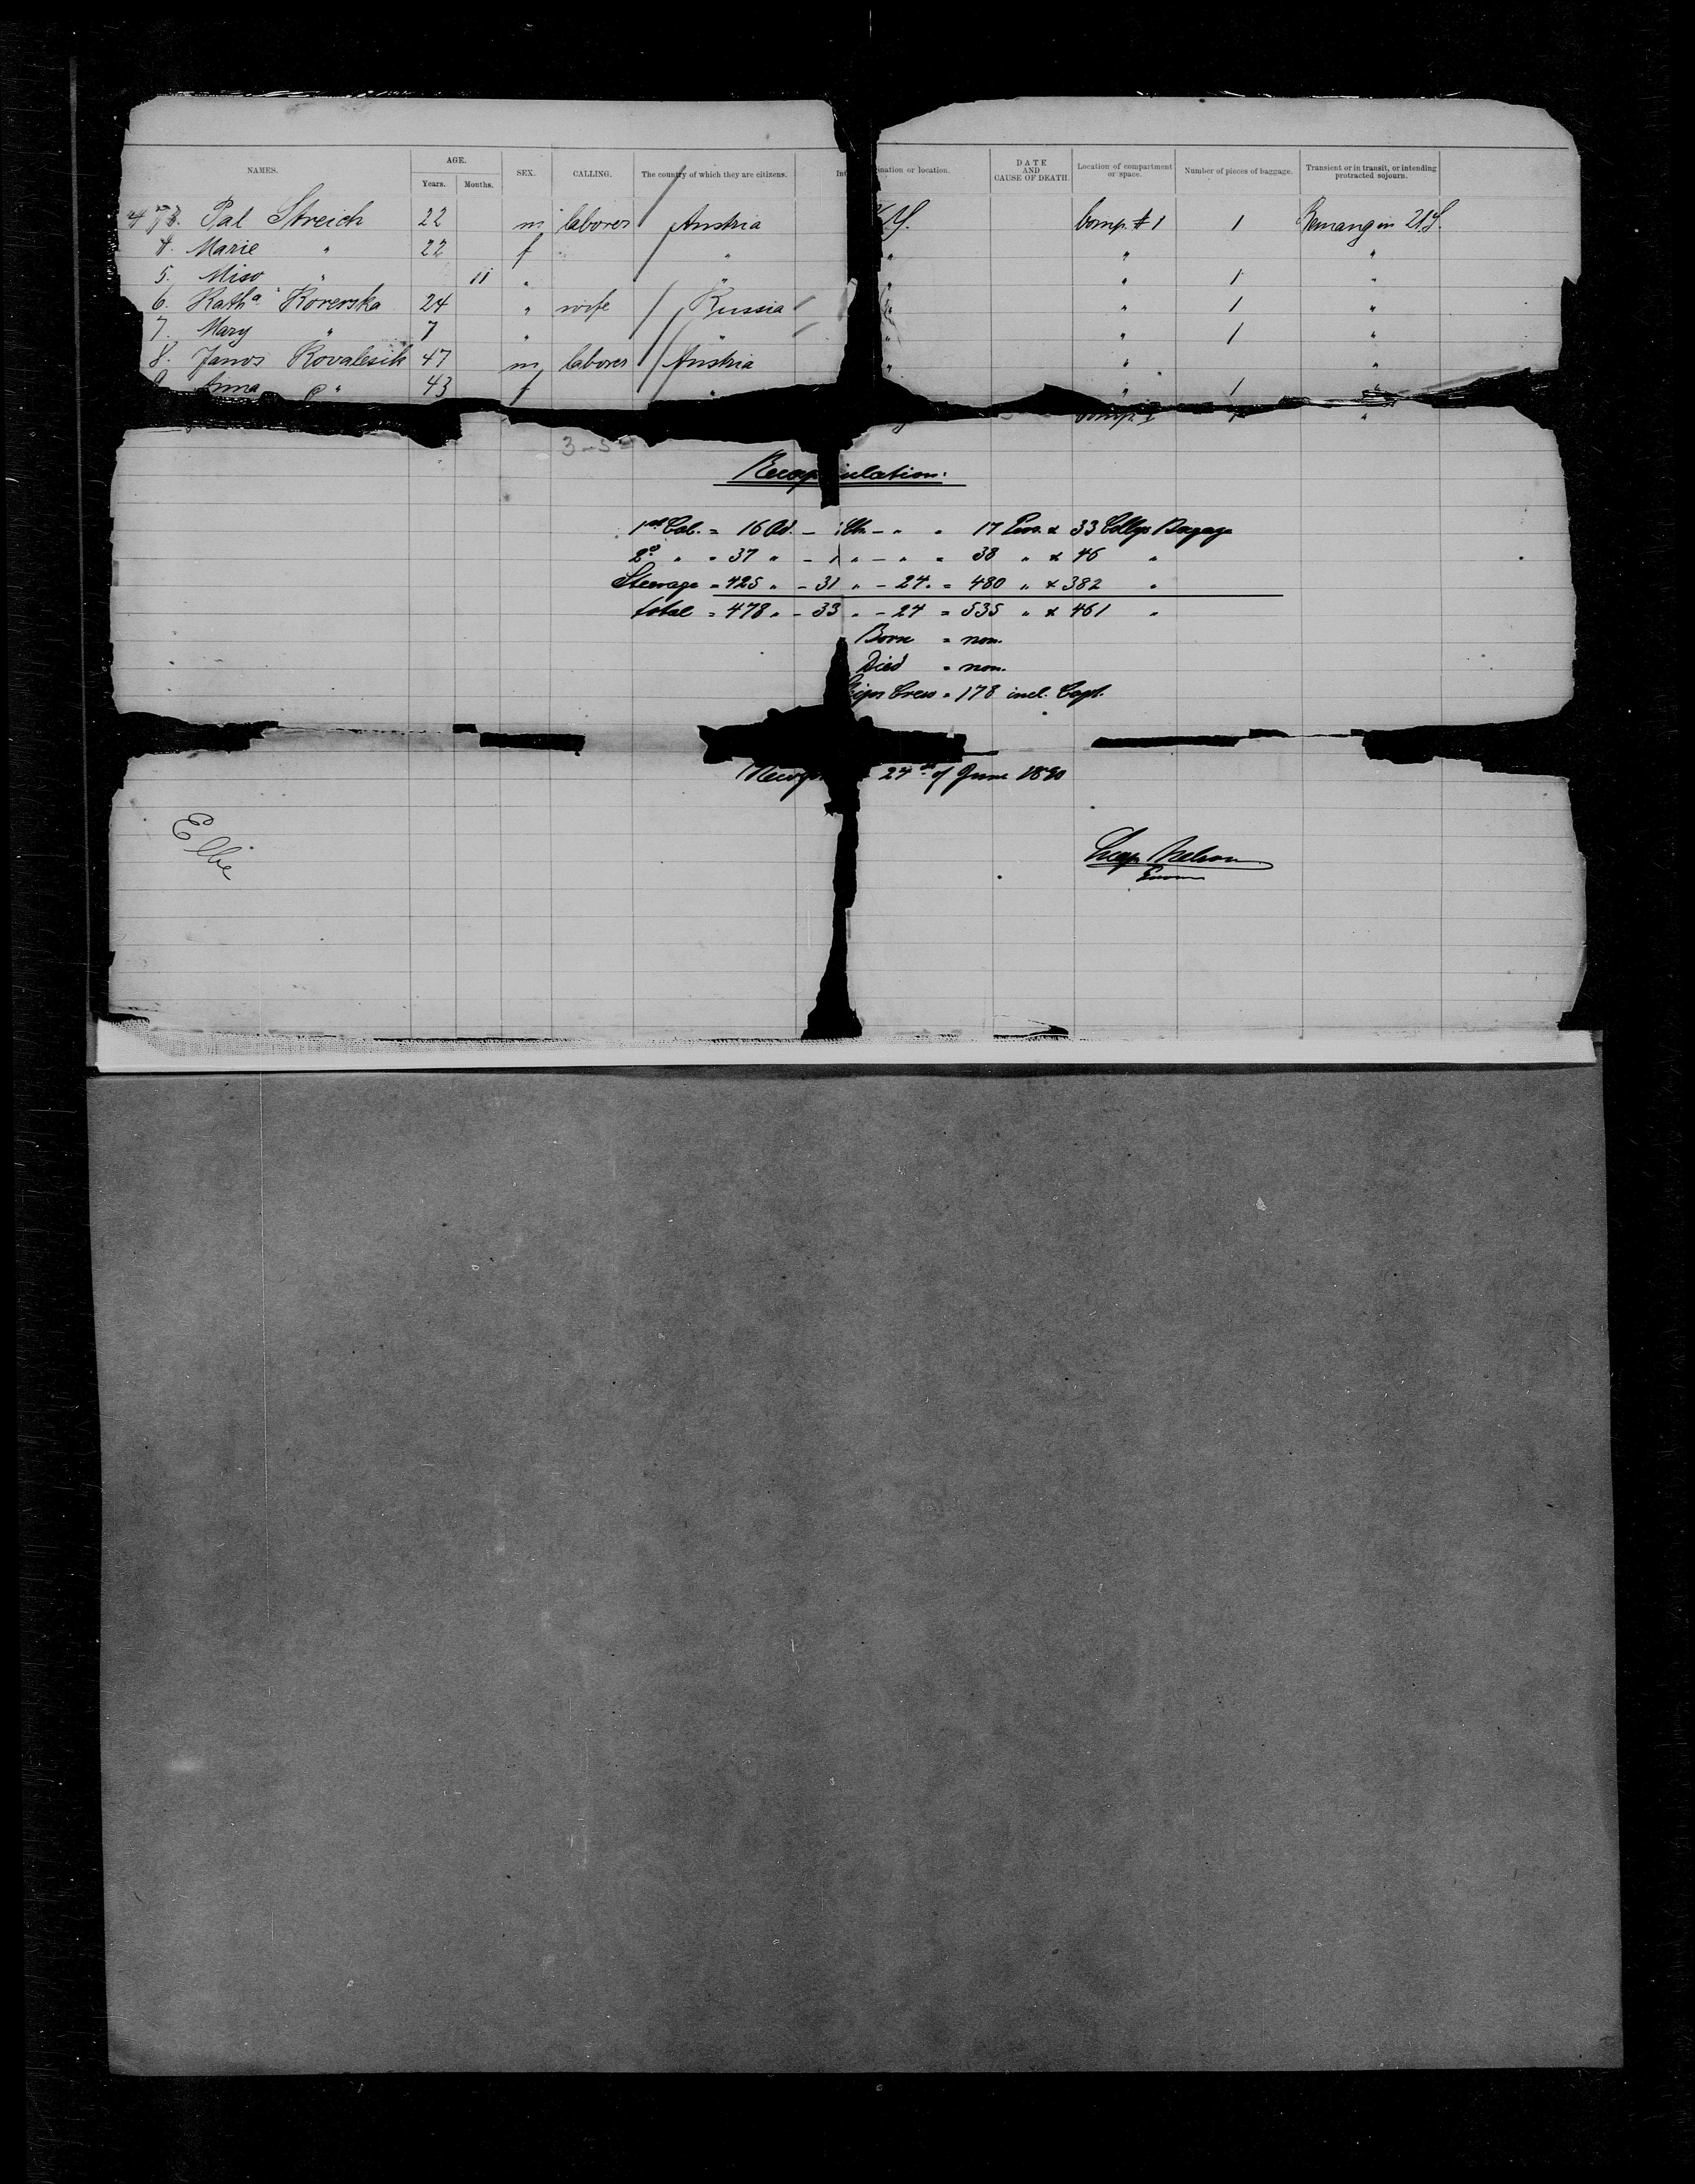 NAMES. AGE. Years. Months. SEX. CALLING. The country of which they are citizens. ination or location. DATE AND CAUSE OF DEATH. Location of compartment or space. Number of pieces of baggage. Transient or in transit, or intending protracted sojourn.
473. Pal Streich 22 m laborer Austria Comp. #1 1
4. Marie " 22 f " " " "
5. Miso " 11 " " " " 1 "
6. Kath.a Koverska 24 " wife Russia " " 1 "
7. Mary " 7 " " " " 1 "
8. Janos Kovalesik 47 m laborer Austria " " "
9. Anna " 43 f " " 1 "
Comp. "
3-5
Recap ulation:
1st Cab. = 16 Ad. - 1 Ch. - " = 17 Pers. & 33 Collys Baggage
2d " = 37 " - 1 " - " = 38 " & 46 "
Steerage = 425 " - 31 " - 24 " = 480 " & 382 "
total = 478 " - 33 " - 24 = 535 " & 461 "
Born = non.
Died = non.
Crew = 178 incl. Capt.
24th of June 1890
Elbe